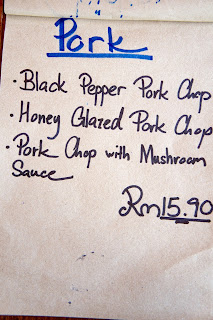 Pork
• Black Pepper Pork Chop
• Honey Glazed Pork Chop
• Pork Chop with Mushroom
Sauce
Rm15.90